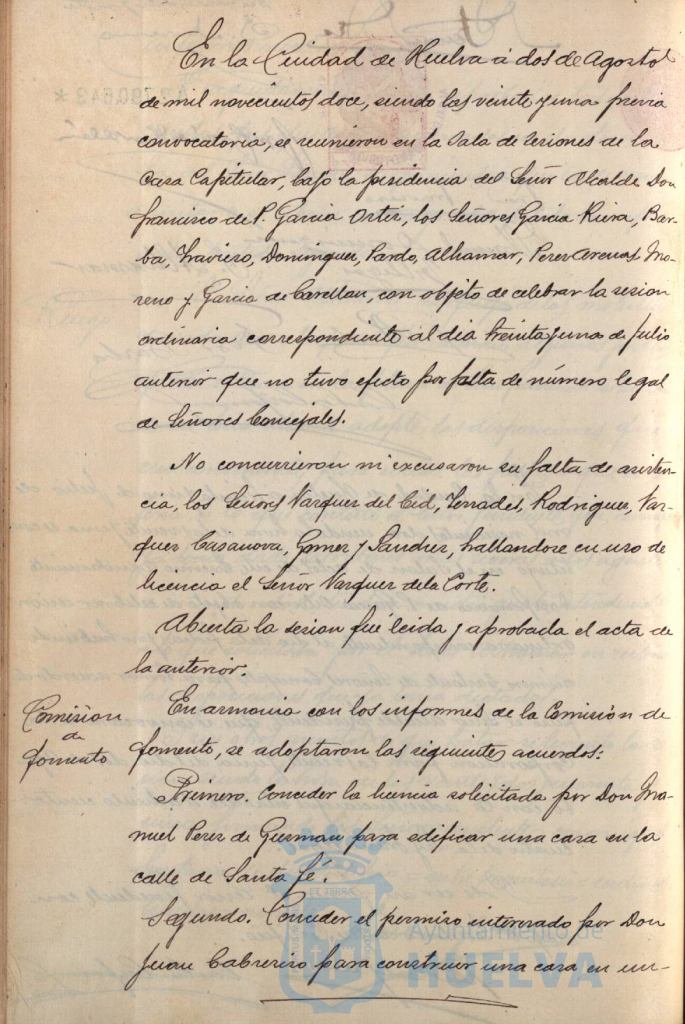 En la Ciudad de Huelva á dos de Agosto
de mil novecientos doce, siendo las veinte y una previa
convocatoria, se reunieron en la Sala de Sesiones de la
Casa Capitular, bajo la presidencia del Señor Alcalde Don
Francisco de P. Garcia Ortiz, los Señores Garcia Riera, Bar-
ba, Traviero, Dominguez, Pardo, Alhamar, Perez Arenas, Mo-
reno y Garcia de Carellan, con objeto de celebrar la sesion
ordinaria correspondiente al dia treinta y uno de Julio
anterior que no tuvo efecto por falta de número legal
de Señores Concejales.
No concurrieron ni excusaron su falta de asisten-
cia, los Señores Vazquez del Cid, Terrades, Rodriguez, Vaz-
quez Casanova, Gomez y Sanchez, hallandose en uso de
licencia el Señor Vazquez de la Corte.
Abierta la sesion fué leida y aprobada el acta de
la anterior.
Comision
de
Fomento
En armonia con los informes de la Comisión de
Fomento, se adoptaron las siguientes acuerdos:
Primero. Conceder la licencia solicitada por Don Ma-
nuel Perez de Guzman para edificar una casa en la
calle de Santa Fé.
Segundo. Conceder el permiso interesado por Don
Juan Cabrerizo para construir una casa en un-
Ayuntamiento de
HUELVA